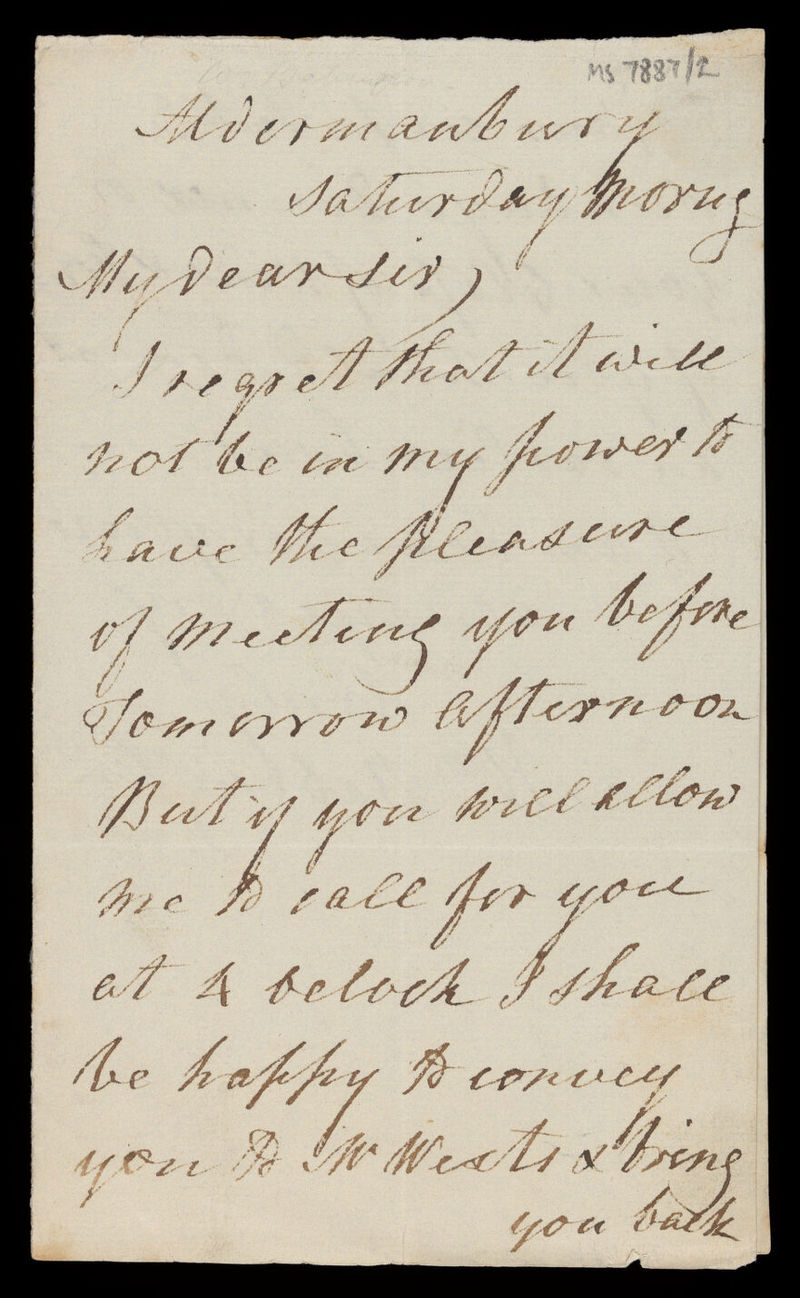 MS 7887/2
Aldermanbury
Saturday Morng
My dear Sir,
I regret that it will
not be in my power to
have the pleasure
of meeting you before
Tomorrow Afternoon
But if you will allow
me to call for you
at 4 oclock I shall
be happy to convey
you to Mr Wests & bring
you back